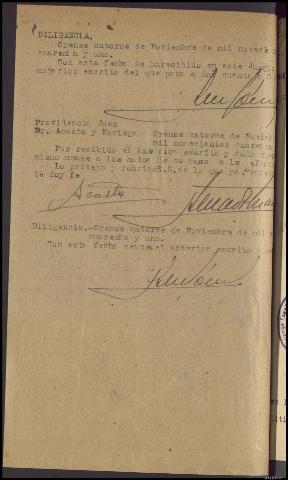 DILIGENCIA.
Orense catorce de Noviembre de mil novecie
cuarenta y uno.
Con esta fecha se ha recibido en este
anterior escrito del que paso a dar cuenta
Providencia Juez
Sr. Acosta y Noriega Orense catorce de Noviem
mil novecientos cuarenta
Por recibido el anterior escrito y
mismo unase a los autos de su razon a los efec
Lo proveyo y rubrica S.S. de lo que yo Secre
te doy fe
Acosta
Diligencia.-Orense catorce de Noviembre de mil n
cuarenta y uno.
Con esta fecha se une el anterior escrito y